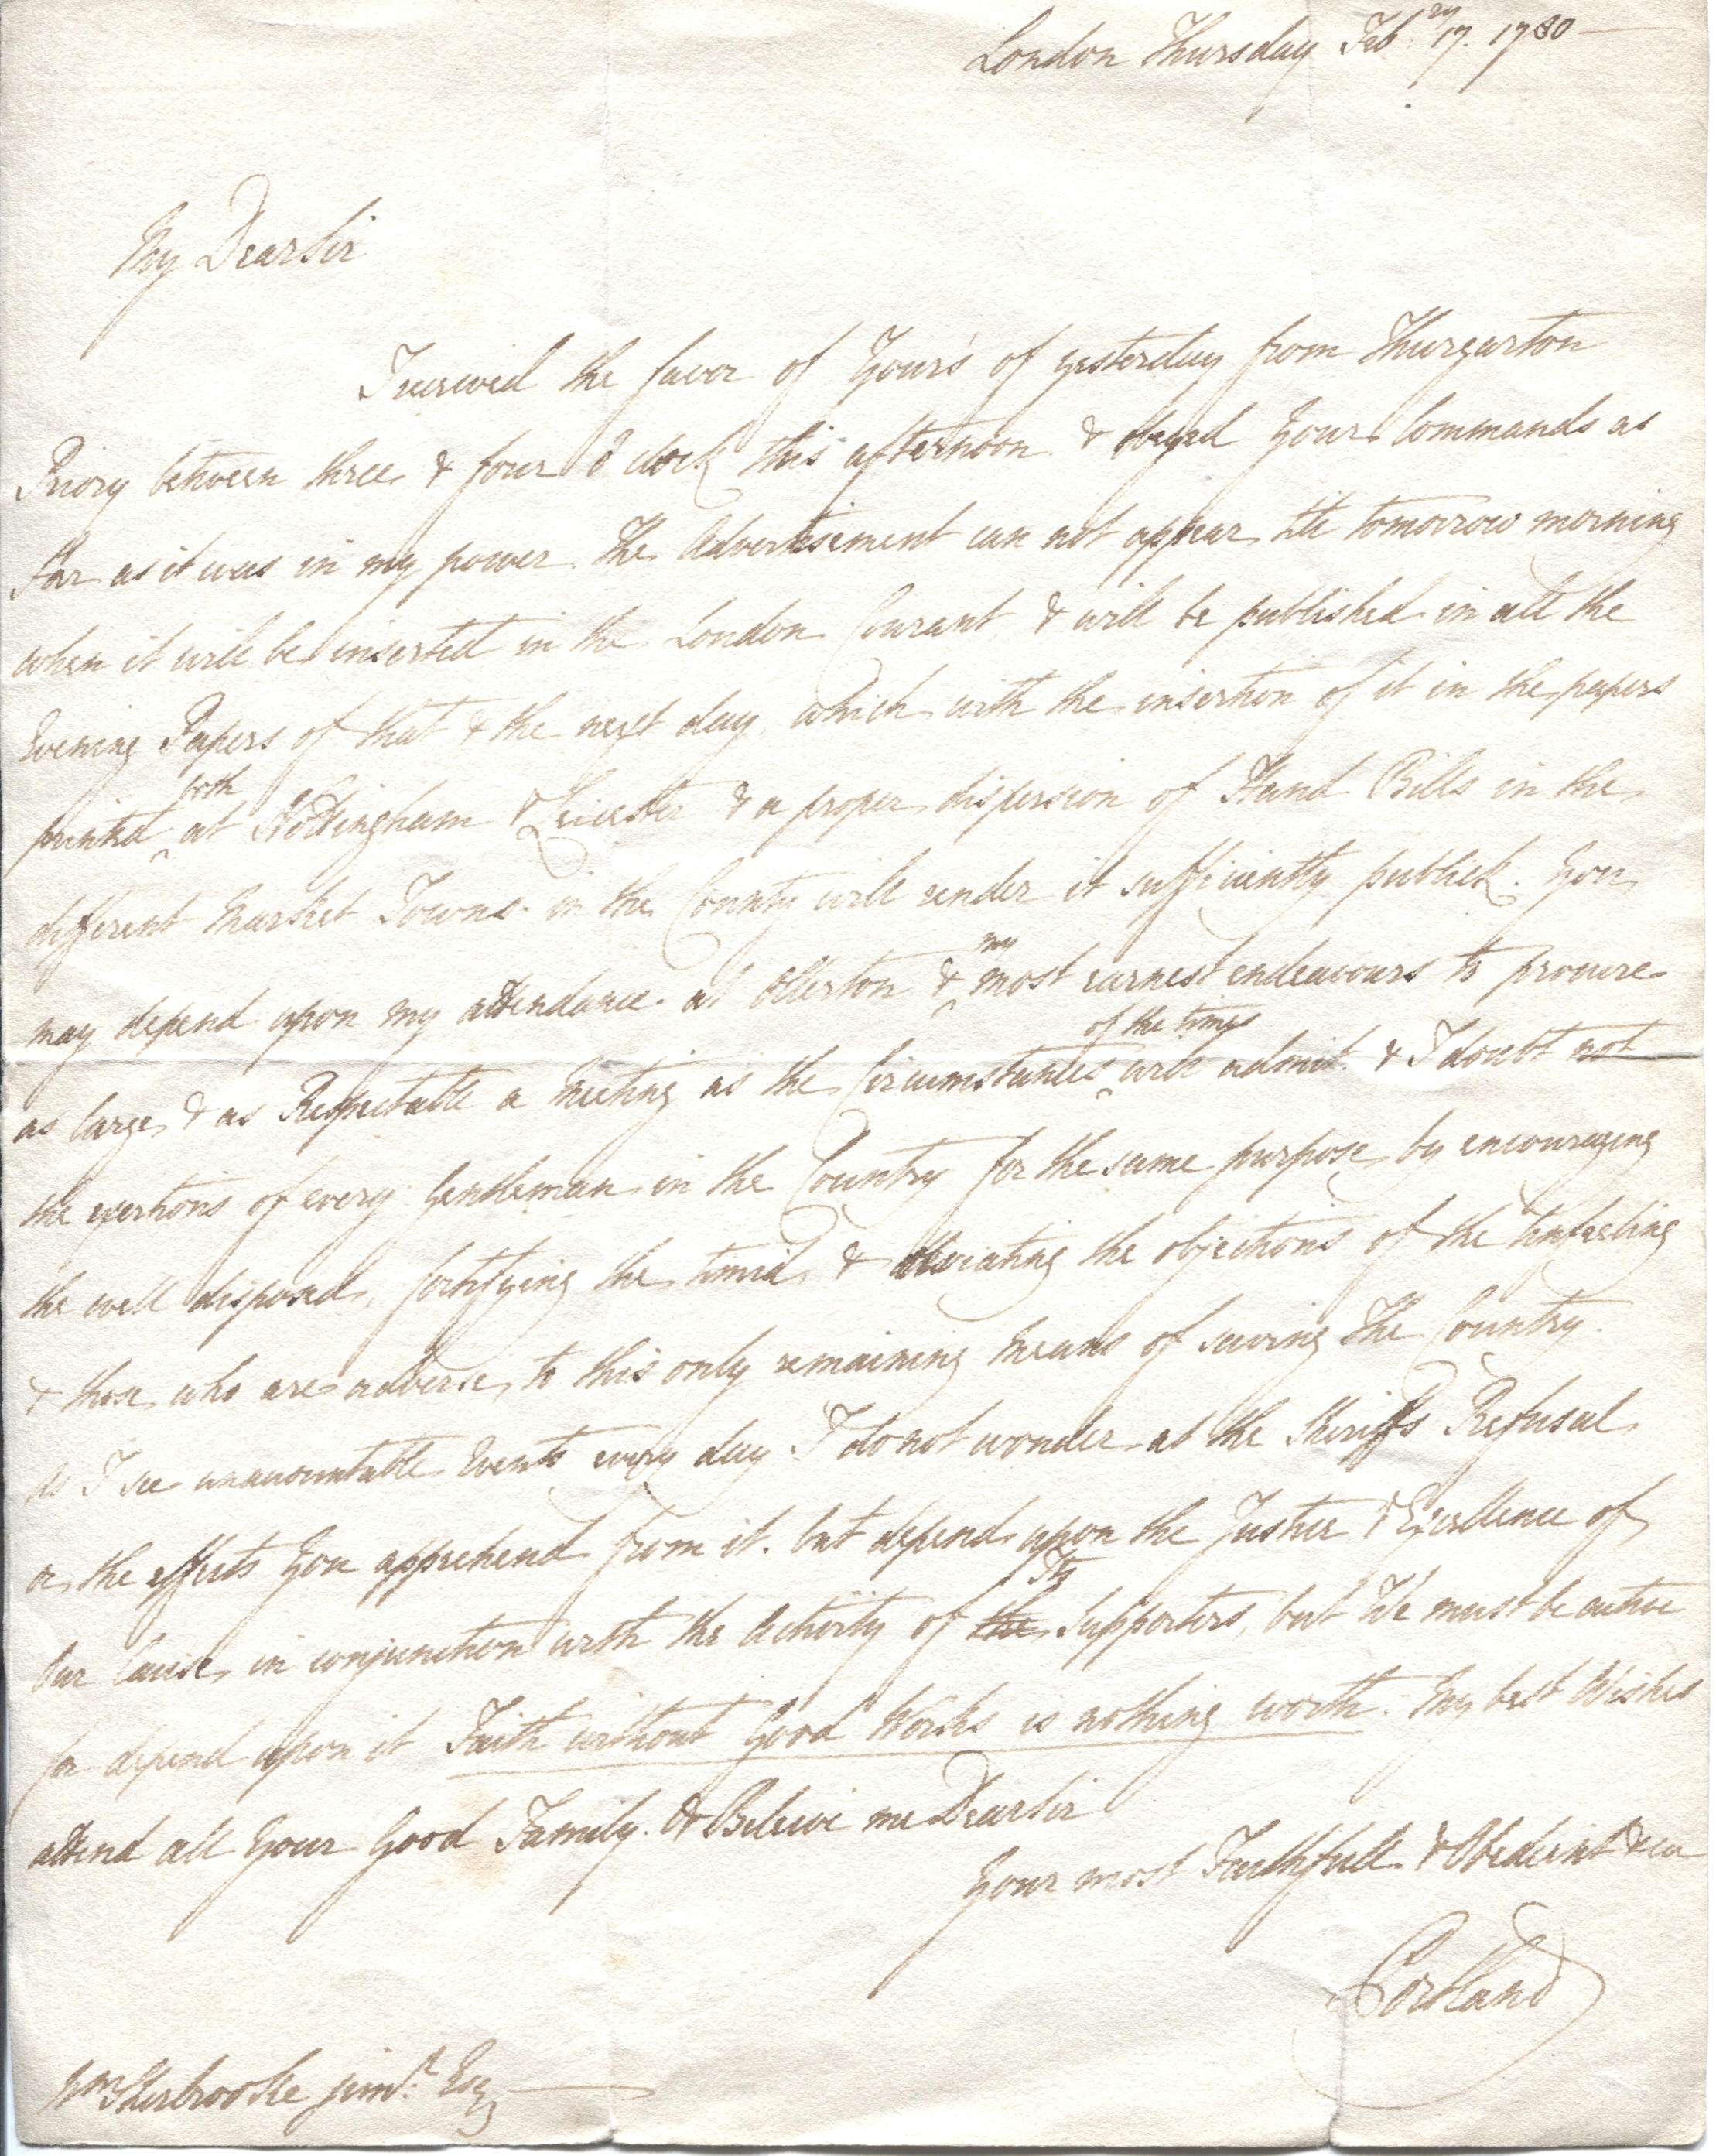 London Thursday Feb:ry 17. 1780
My Dear Sir
I received the favor of Your's of yesterday from Thurgarton
Priory between three & four o'clock this afternoon & obeyed Your Commands as
far as it was in my power. The Advertisement can not appear till tomorrow morning
when it will be inserted in the London Courant, & will be published in all the
Evening Papers of that & the next day, which with the insertion of it in the papers
both
printed at Nottingham & Leicester & a proper dispersion of Hand Bills in the
different Market Towns in the County will render it sufficiently publick. You
my
may depend upon my attendance at Ollerton & most earnest endeavours to procure
of the times
as large & as Respectable a Meeting as the Circumstances will admit. & I doubt not
the exertions of every Gentleman in the Country for the same purpose by encouraging
the well disposed, fortifying the timid, & obviating the objections of the Unfeeling
& those who are adverse to this only remaining Means of saving The Country.
As I see unaccountable Events every day I do not wonder at the Sheriff's Refusal
or the effects You apprehend from it. but depend upon the Justice & Excellence of
Its
Our Cause, in conjunction with the Activity of the Supporters, but We must be active
for depend upon it Faith without Good Works is nothing worth. My best Wishes
attend all Your Good Family. & Beleive me Dear Sir
Your most Faithfull & Obedient &ca
Portland
Wm Sherbrooke junr. Esq